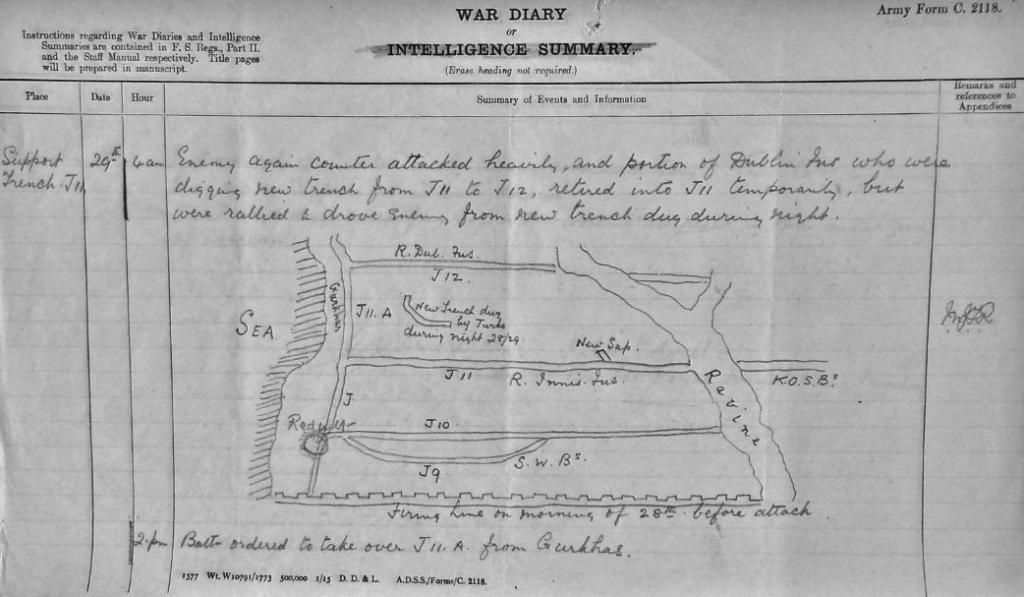 WAR DIARY
Army Form C. 2118.
or
INTELLIGENCE SUMMARY.
(Erase heading not required.)
Instructions regarding War Diaries and Intelligence
Summaries are contained in F. S. Regs., Part II.
and the Staff Manual respectively. Title pages
will be prepared in manuscript.
Place
Date
Hour
Summary of Events and Information
Remarks and
references to
Appendices
Support
Trench J11
29th
4 am
Enemy again counter attacked heavily, and portion of Dublin Fus who were
digging new trench from J11 to J12, retired into J11 temporarily, but
were rallied & drove enemy from new trench dug during night.
R. Dub. Fus.
J12.
Gurkhas
J11.A
New Trench dug
by Turks
during night 28/29
SEA
New Sap.
J11
R. Innis. Fus.
K.O.S.Bs
Ravine
J
J10
J9
S.W.Bs.
Firing line on morning of 28th before attack
2.pm
Battn ordered to take over J11.A. from Gurkhas.
1577 Wt. W10791/1773 500,000 1/15 D. D. & L. A.D.S.S./Forms/C. 2118.